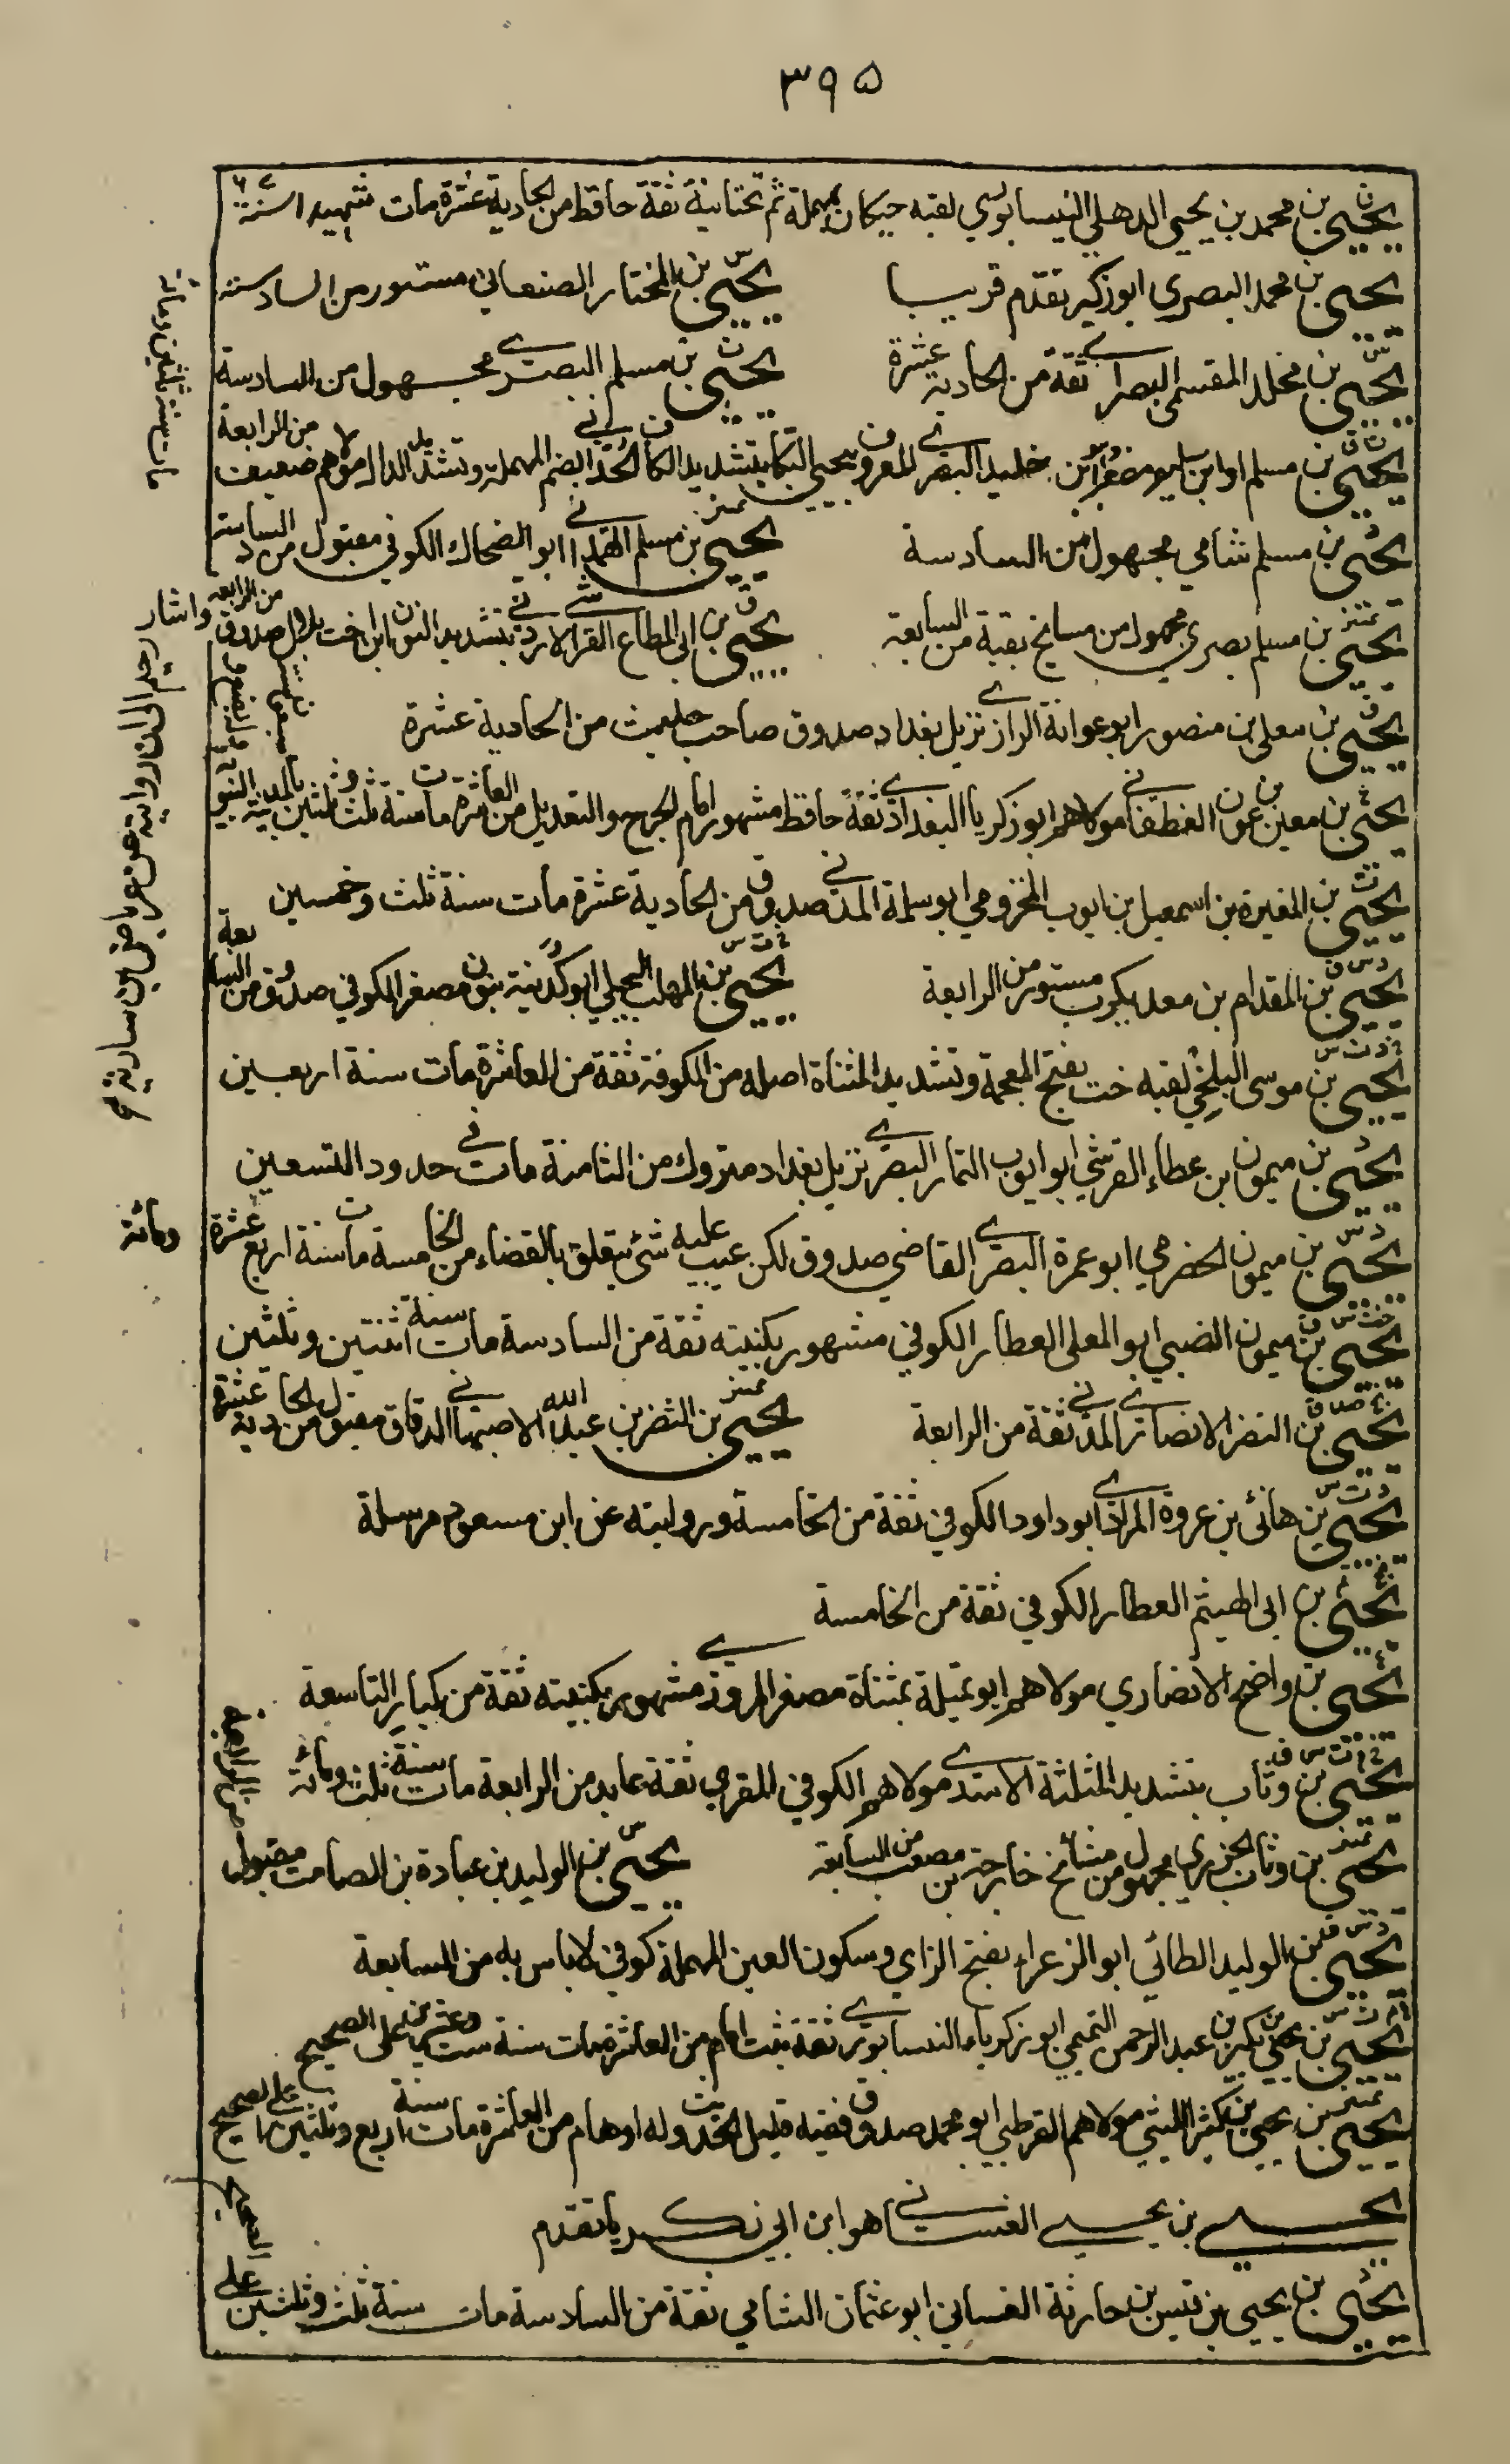 ٣٩٥
يحيى بن محمد بن يحيى الذهلي النيسابوري لقبه حيكان بمهملة ثم تحتانية ثقة حافظ من الحادية عشرة مات شهيدا سنة ٦٧
يحيى بن محمد البصري ابو زكير تقدم قريبا
يحيى بن المختار الصنعاني مستور من السادسة
يحيى بن مخلد المقسمي البصرى ثقة من الحادية عشرة
يحيى بن مسلم البصرى مجهول من السادسة
يحيى بن مسلم او ابن سليم مصغرا بن خليد البصرى المعروف بيحيى البكا بتشديد الكاف الحدانى بضم المهملة وتشديد الدال مولاهم ضعيف من الرابعة
يحيى بن مسلم شامي مجهول من السادسة
يحيى بن مسلم الهمدانى ابو الضحاك الكوفي مقبول من السادسة
يحيى بن مسلم بصري مجهول من مسايخ بقية من السابعة
يحيى بن ابى المطاع القرشى الاردنى بتشديد النون ابن اخت بلال صدوق من الرابعة واشار
يحيى بن معلى بن منصور ابو عوانة الرازى نزيل بغداد صدوق صاحب حديث من الحادية عشرة
يحيى بن معين بن عون الغطفانى مولاهم ابو زكريا البغدادى ثقة حافظ مشهور امام الجرح والتعديل من العاشرة مات سنة ثلث وثلثين بالمدينة النبوية
يحيى بن المغيرة بن اسمعيل بن ايوب المخزومي ابو سلمة المدنى صدوق من الحادية عشرة مات سنة ثلث وخمسين
يحيى بن المقدام بن معد يكرب مستور من الرابعة
يحيى بن المهلب البجلي ابو كدينة بنون مصغر الكوفي صدوق من السابعة
يحيى بن موسى البلخي لقبه خت بفتح المعجمة وتشديد المثناة اصله من الكوفة ثقة من العاشرة مات سنة اربعين
يحيى بن ميمون بن عطاء القرشي ابو ايوب التمار البصرى نزيل بغداد متروك من الثامنة مات فى حدود التسعين
ومائة
يحيى بن ميمون الحضرمي ابو عمرة البصرى القاضي صدوق لكن عيب عليه شئ يتعلق بالقضاء من الخامسة مات سنة اربع عشرة
يحيى بن ميمون الضبي ابو المعلى العطار الكوفي مشهور بكنيته ثقة من السادسة مات سنة اثنتين وثلثين
يحيى بن النضر الانصارى المدنى ثقة من الرابعة
يحيى بن النضر بن عبد الله الاصبهانى الدقاق مقبول من الحادية عشرة
يحيى بن هانئ بن عروة المرادى ابو داود الكوفي ثقة من الخامسة وروايته عن ابن مسعود مرسلة
يحيى بن ابى الهيثم العطار الكوفي ثقة من الخامسة
يحيى بن واضح الانصاري مولاهم ابو تميلة بمثناة مصغر المروزى مشهور بكنيته ثقة من كبار التاسعة
يحيى بن وثاب بتشديد المثلثة الاسدى مولاهم الكوفي المقرى ثقة عابد من الرابعة مات سنة ثلث ومائة
يحيى بن وثاب الجزري مجهول من مشائخ خارجة بن مصعب من السابعة
يحيى بن الوليد بن عبادة بن الصامت مقبول من الرابعة
يحيى بن الوليد الطائي ابو الزعراء بفتح الزاي وسكون العين المهملة كوفي لا باس به من السابعة
يحيى بن يحيى بن بكر بن عبد الرحمن التميمي ابو زكرياء النيسابورى ثقة ثبت امام من العاشرة مات سنة ست وعشرين على الصحيح
يحيى بن يحيى بن كثير الليثي مولاهم القرطبي ابو محمد صدوق فقيه قليل الحديث وله اوهام من العاشرة مات سنة اربع وثلثين على الصحيح
يحيى بن يحيى الغسانى هو ابن ابي زكريا تقدم
يحيى بن يحيى بن قيس بن حارثة الغساني ابو عثمان الشامي ثقة من السادسة مات سنة ثلث وثلثين على الصحيح
مات سنة ثلثين ومائة
دحيم الى ان روايته عن عرباض بن سارية